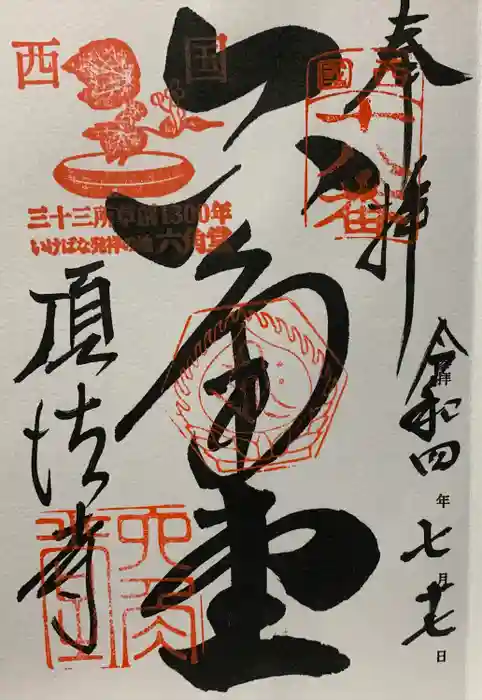 奉拝
令和四年七月十七日
西国十八番
六角堂
西国
三十三所草創1300年
いけばな発祥の地 六角堂
頂法寺
六角堂